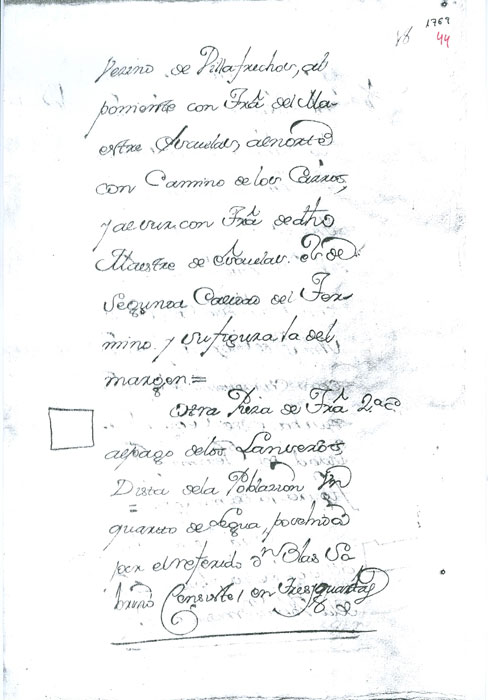 1769
44
Vezino de Villafrechos, al
poniente con Trrã del Ma-
estre Arauelas, al norte
con Camino de los Carros,
y al sur con Trrã de dho
Maestre de Arauelas. Es de
Segunda Calidad del Ter-
mino y su figura la del
margen =
Otra Pieza de Trrã 2.ª C.
al pago de los
Dista de la Poblazion Vn
quarto de legua, posehida
por el referido Dⁿ Blas Sa
Consiste en tres quartas